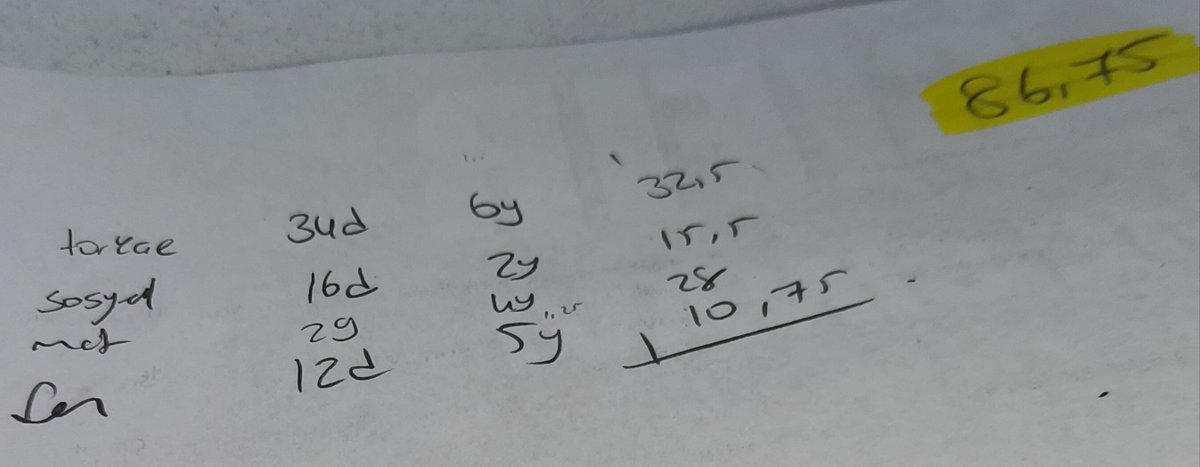 86,75
türkçe 34d 6y 32,5
sosyal 16d 2y 15,5
mat 29 4y 28
fen 12d 5y 10,75